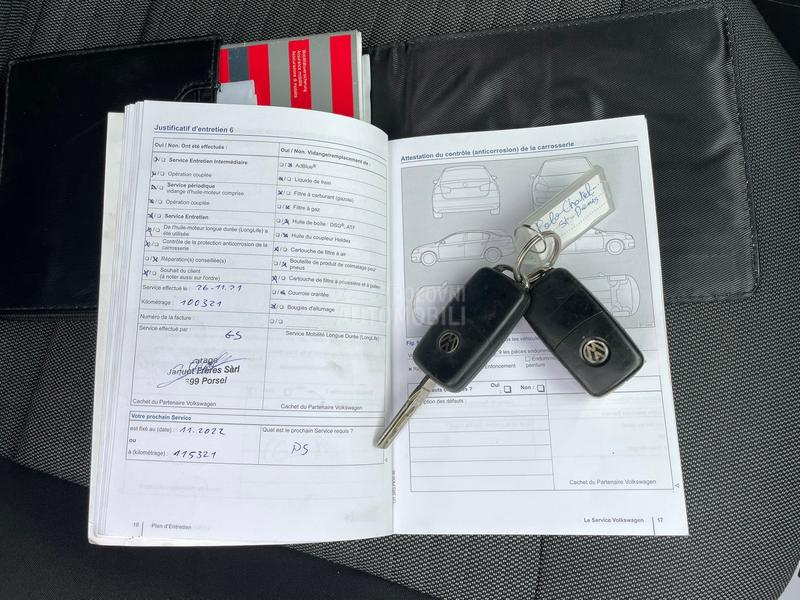 Mobilitätsversicherung
Assurance mobilité
Assicurazione di mobilità
Justificatif d'entretien 6
Oui / Non. Ont été effectués :
Service Entretien Intermédiaire
Opération couplée
Service périodique
vidange d'huile-moteur comprise
Opération couplée
Service Entretien
De l'huile-moteur longue durée (LongLife) a
été utilisée
Contrôle de la protection anticorrosion de la
carrosserie
Réparation(s) conseillée(s)
Souhait du client
(à noter aussi sur l'ordre)
Service effectué le : 26-11.21
Kilométrage : 100321
Numéro de la facture :
Service effectué par : GS
Garage
Jaquet Frères Sàrl
Porsel
Cachet du Partenaire Volkswagen
Oui / Non. Vidange/remplacement de :
AdBlue®
Liquide de frein
Filtre à carburant (gazole)
Filtre à gaz
Huile de boîte : DSG®, ATF
Huile du coupleur Haldex
Cartouche de filtre à air
Bouteille de produit de colmatage pour
pneus
Cartouche de filtre à poussière et à pollen
Courroie crantée
Bougies d'allumage
Service Mobilité Longue Durée (LongLife)
Cachet du Partenaire Volkswagen
Votre prochain Service
est fixé au (date) : 11.2022
ou
à (kilométrage) : 115321
Quel est le prochain Service requis ?
PS
16 Plan d'Entretien
Attestation du contrôle (anticorrosion) de la carrosserie
Polo Chatel-
St-Denis
POLOVNI
AUTOMOBILI
les véhicules
les pièces endom
Enfoncement
Endomm
peinture
Oui :
Non :
ption des défauts :
Cachet du Partenaire Volkswagen
Le Service Volkswagen 17